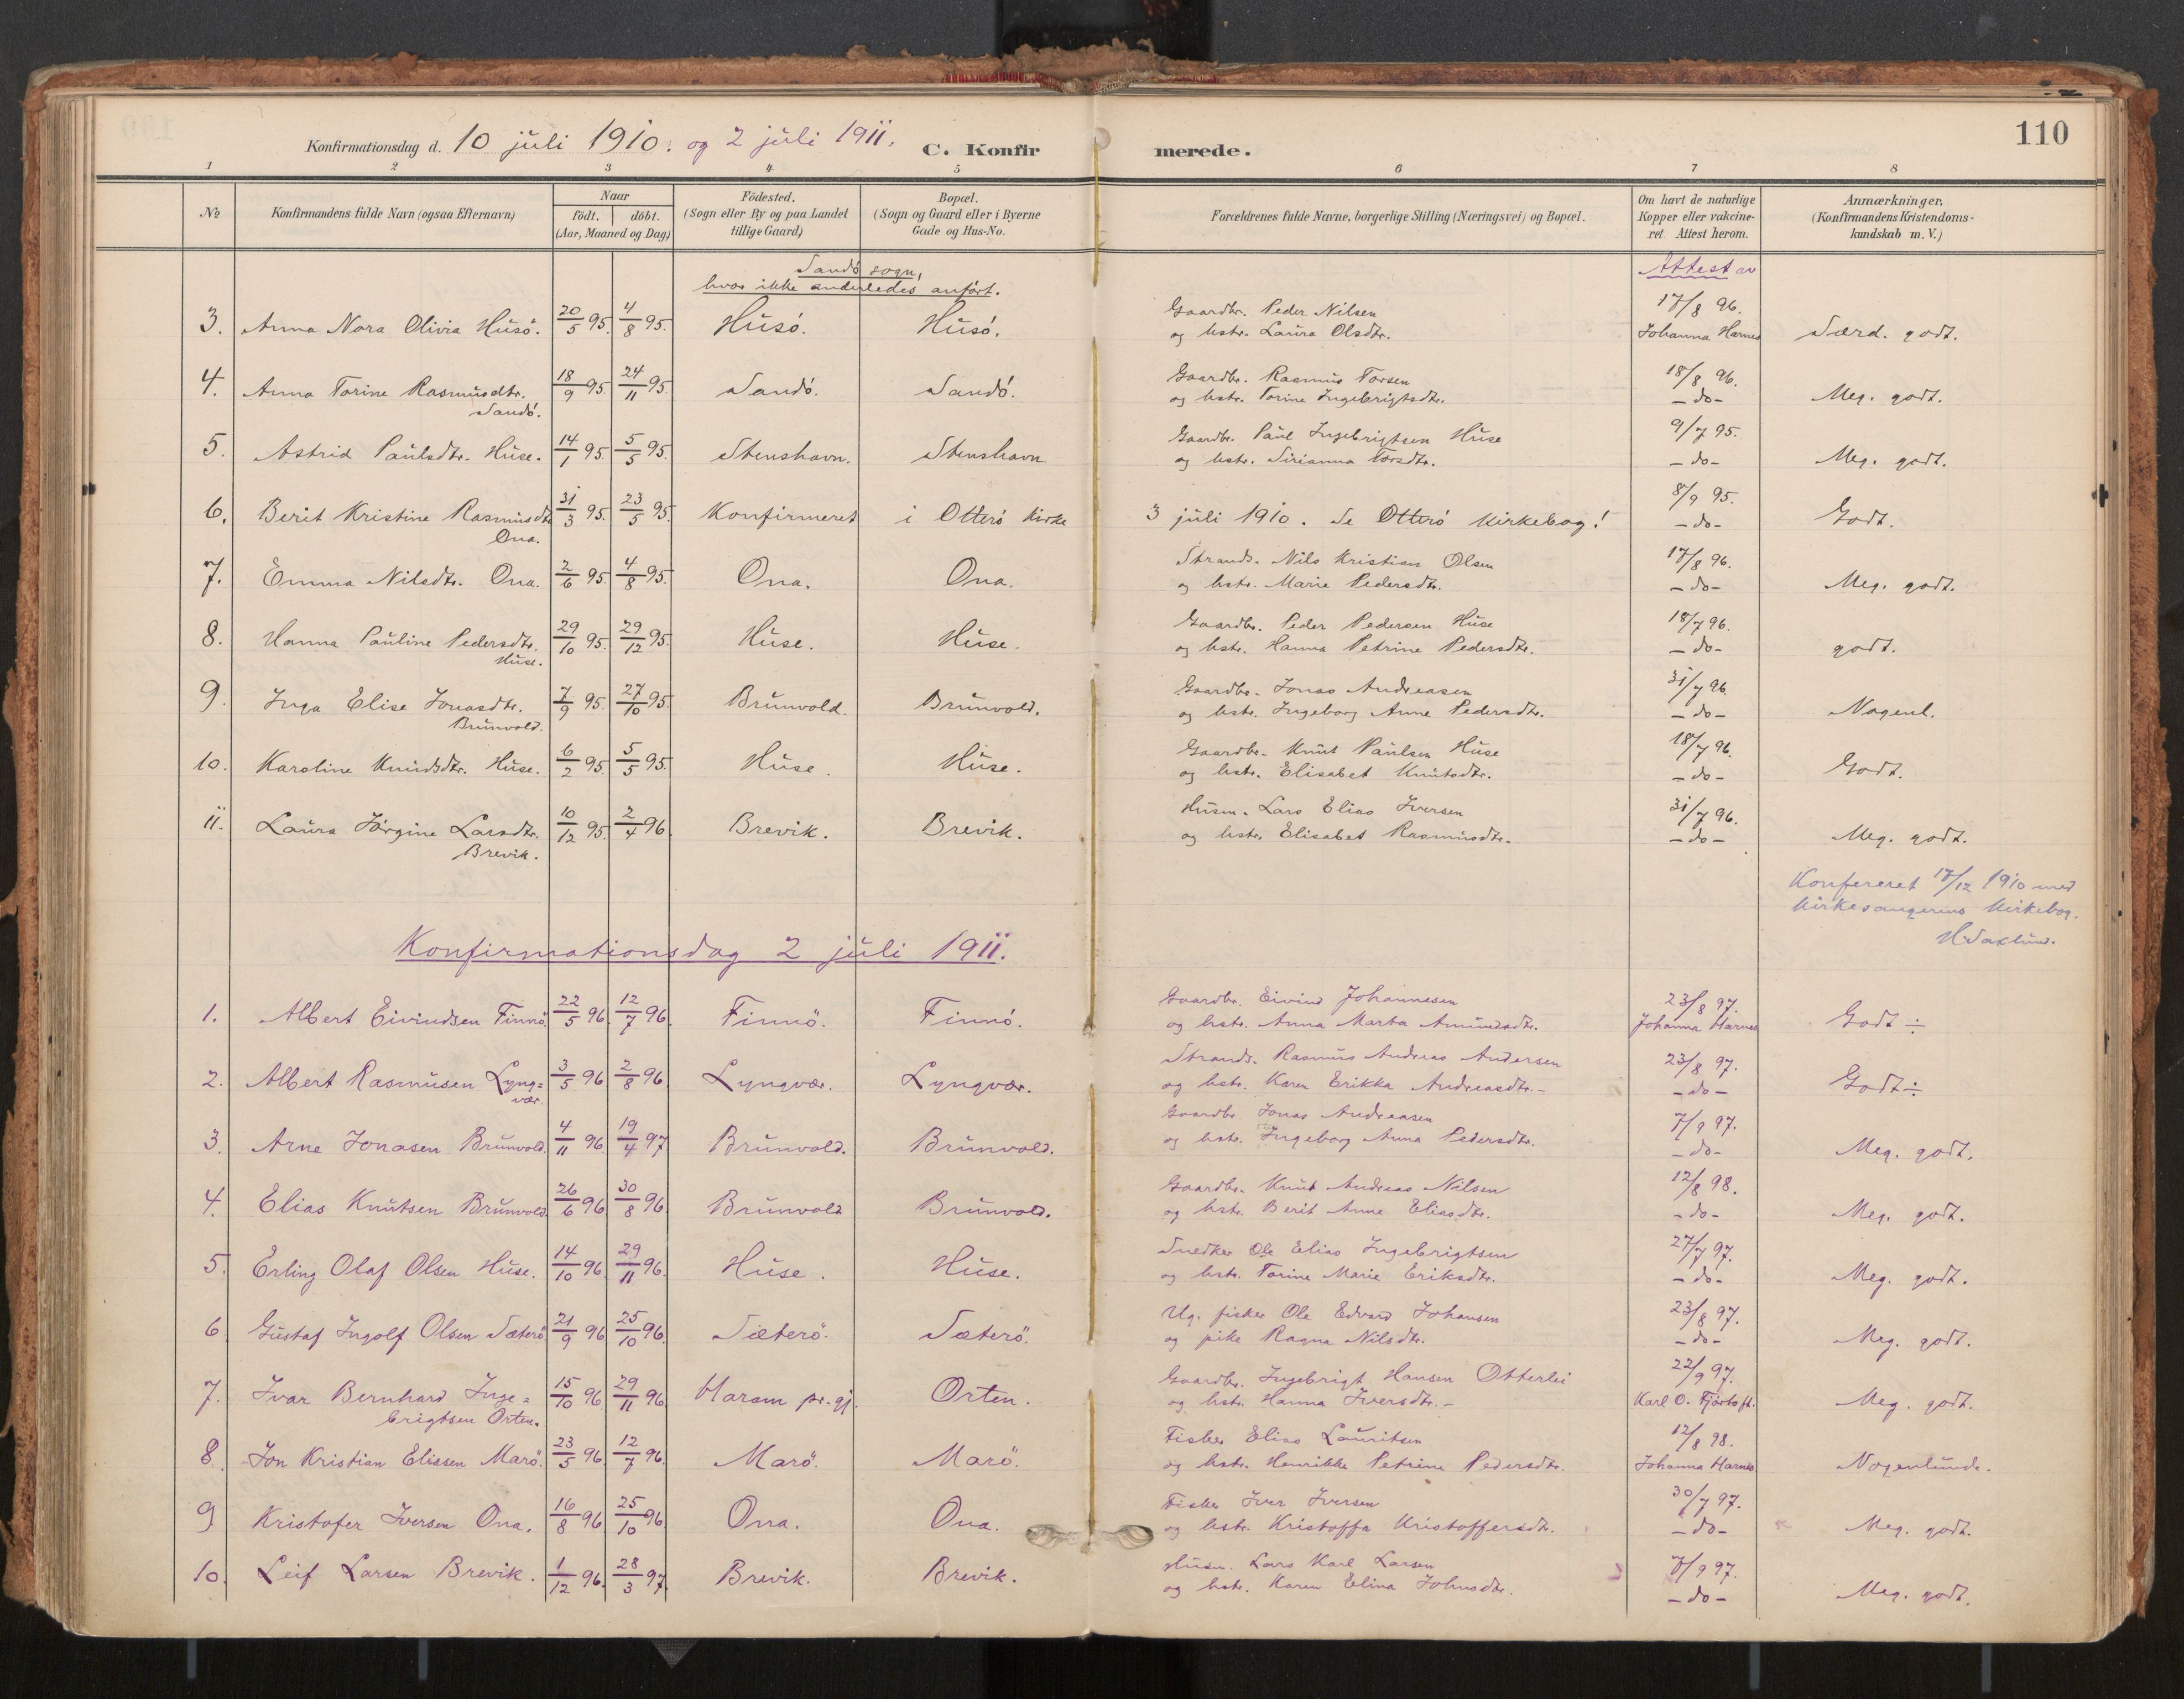 110
Konfirmationsdag d. 10 juli 1910. og 2 juli 1911. C. Konfir merede.
1 2 3 4 5 6 7 8
No Konfirmandens fulde Navn (ogsaa Efternavn) Naar födt. döbt. (Aar, Maaned og Dag) Födested. (Sogn eller By og paa Landet tillige Gaard) Bopæl. (Sogn og Gaard eller i Byerne Gade og Hus-No. Forældrenes fulde Navne, borgerlige Stilling (Næringsvei) og Bopæl. Om havt de naturlige Kopper eller vakcineret Attest herom. Anmærkninger, (Konfirmandens Kristendomskundskab m. V.)
Sandö sogn,
hvor ikke anderledes anført. Attest av
3. Anna Nora Olivia Husö. 20/5 95. 4/8 95. Husö. Husö. Gaardbr. Peder Nilsen 17/8 96.
og hstr. Laura Olsdtr. Johanna Harnes Særd. godt.
4. Anna Torine Rasmusdtr. 18/9 95. 24/11 95. Sandö. Sandö. Gaardbr. Rasmus Torsen 18/8 96.
Sandö. og hstr. Torine Ingebrigtsdtr. -do- Meg. godt.
5. Astrid Paulsdtr. Huse. 14/1 95. 5/5 95. Stenshavn. Stenshavn Gaardbr. Paul Ingebrigtsen Huse 9/7 95.
og hstr. Sirianna Torsdtr. -do- Meg. godt.
6. Berit Kristine Rasmusdtr. 31/3 95. 23/5 95. Konfirmeret i Otterö kirke 3 juli 1910. Se Otterö kirkebog! 8/9 95.
Ona. -do- Godt.
7. Emma Nilsdtr. Ona. 2/6 95. 4/8 95. Ona. Ona. Strands. Nils Kristian Olsen 17/8 96.
og hstr. Marie Pedersdtr. -do- Meg. godt.
8. Hanna Pauline Pedersdtr. 29/10 95. 29/12 95. Huse. Huse. Gaardbr. Peder Pedersen Huse 18/7 96.
Huse. og hstr. Hanna Petrine Pedersdtr. -do- godt.
9. Inga Elise Jonasdtr. 7/9 95. 27/10 95. Brunvold. Brunvold. Gaardbr. Jonas Andreasen 31/7 96.
Brunvold. og hstr. Ingeborg Anne Pedersdtr. -do- Nogenl.
10. Karoline Knudsdtr. Huse. 6/2 95. 5/5 95. Huse. Huse. Gaardbr. Knut Paulsen Huse 18/7 96.
og hstr. Elisabet Knutsdtr. -do- Godt.
11. Laura Jörgine Larsdtr. 10/12 95. 2/4 96. Brevik. Brevik. Husm. Lars Elias Iversen 31/7 96.
Brevik. og hstr. Elisabet Rasmusdtr. -do- Meg. godt.
Konfereret 17/12 1910 med
kirkesangerens kirkebog.
Konfirmationsdag 2 juli 1911.
1. Albert Eivindsen Finnö. 22/5 96. 12/7 96. Finnö. Finnö. Gaardbr. Eivind Johannesen 23/8 97.
og hstr. Anna Marta Amundsdtr. Johanna Harnes Godt ÷
2. Albert Rasmusen Lyng= 3/5 96 2/8 96. Lyngvær. Lyngvær. Strands. Rasmus Andreas Andersen 23/8 97.
vær. og hstr. Karen Erikka Andreasdtr. - -do- Godt ÷
3. Arne Jonasen Brunvold. 4/11 96 19/4 97. Brunvold. Brunvold. Gaardbr. Jonas Andreasen 7/9 97.
og hstr. Ingeborg Anna Pedersdtr. -do- Meg. godt.
4. Elias Knutsen Brunvold. 26/6 96 30/8 96. Brunvold Brunvold. Gaardbr. Knut Andreas Nilsen 12/8 98.
og hstr. Berit Anne Eliasdtr. -do- Meg. godt.
5. Erling Olaf Olsen Huse. 14/10 96. 29/11 96. Huse. Huse. Snedker Ole Elias Ingebrigtsen 27/7 97.
og hstr. Torine Marie Eriksdtr. -do- Meg. godt.
6. Gustaf Ingolf Olsen Sæterö 21/9 96. 25/10 96. Sæterö. Sæterö. Ug. fisker Ole Edvard Johansen 23/8 97.
og pike Ragna Nilsdtr. -do- Meg. godt.
7. Ivar Bernhard Inge= 15/10 96 29/11 96. Haram pr.gj. Orten. Gaardbr. Ingebrigt Hansen Otterlei 22/9 97.
brigtsen Orten. og hstr. Hanna Iversdtr. - Karl O. Fjörtoft. Meg. godt.
8. Jon Kristian Eliasen Marö. 23/5 96. 12/7 96. Marö. Marö. Fisker Elias Lauritsen 12/8 98.
og hstr. Henrikke Petrine Pedersdtr. Johanna Harnes Nogenlunde.
9 Kristofer Iversen Ona. 16/8 96. 25/10 96. Ona. Ona. Fisker Iver Iversen 30/7 97.
og hstr. Kristoffa Kristoffersdtr. -do- Meg. godt.
10. Leif Larsen Brevik. 1/12 96. 28/3 97. Brevik. Brevik. Husm. Lars Karl Larsen 7/9 97.
og hstr. Karen Elina Johnsdtr. -do- Meg. godt.